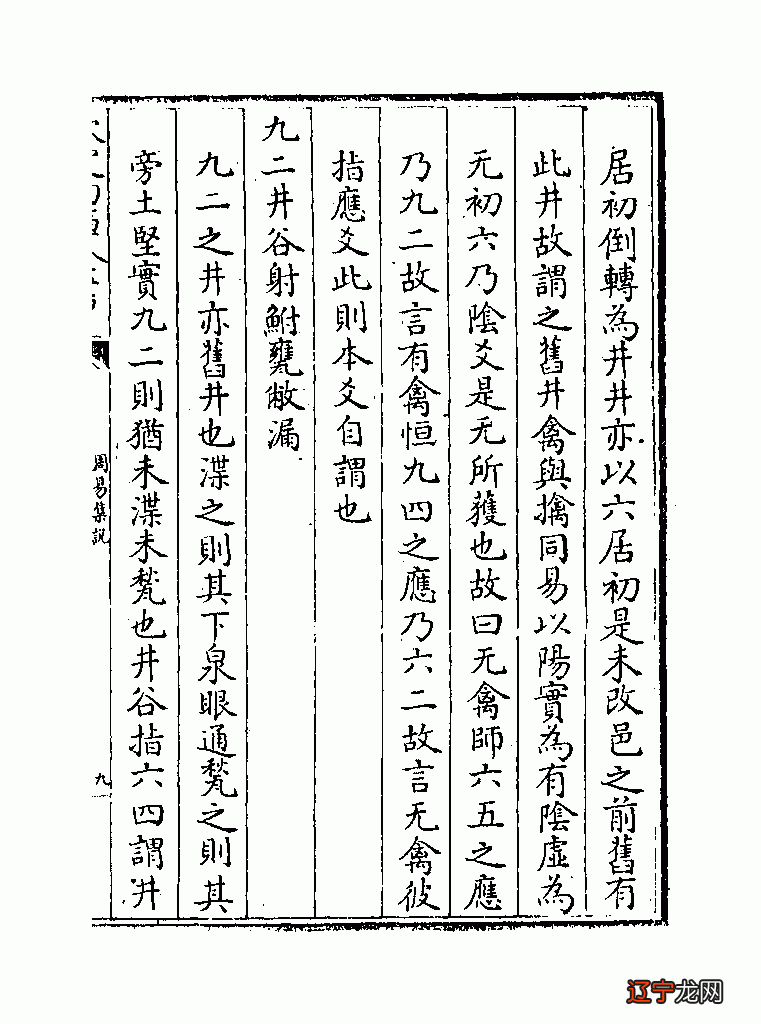 居初倒轉為井井亦以六居初是未改邑之前舊有
此井故謂之舊井禽與擒同易以陽實為有陰虛為
无初六乃陰爻是无所獲也故曰无禽師六五之應
乃九二故言有禽恒九四之應乃六二故言无禽彼
指應爻此則本爻自謂也
九二井谷射鮒甕敝漏
九二之井亦舊井也渫之則其下泉眼通甃之則其
旁土堅實九二則猶未渫未甃也井谷指六四謂井
周易集說
九
辽宁龙网